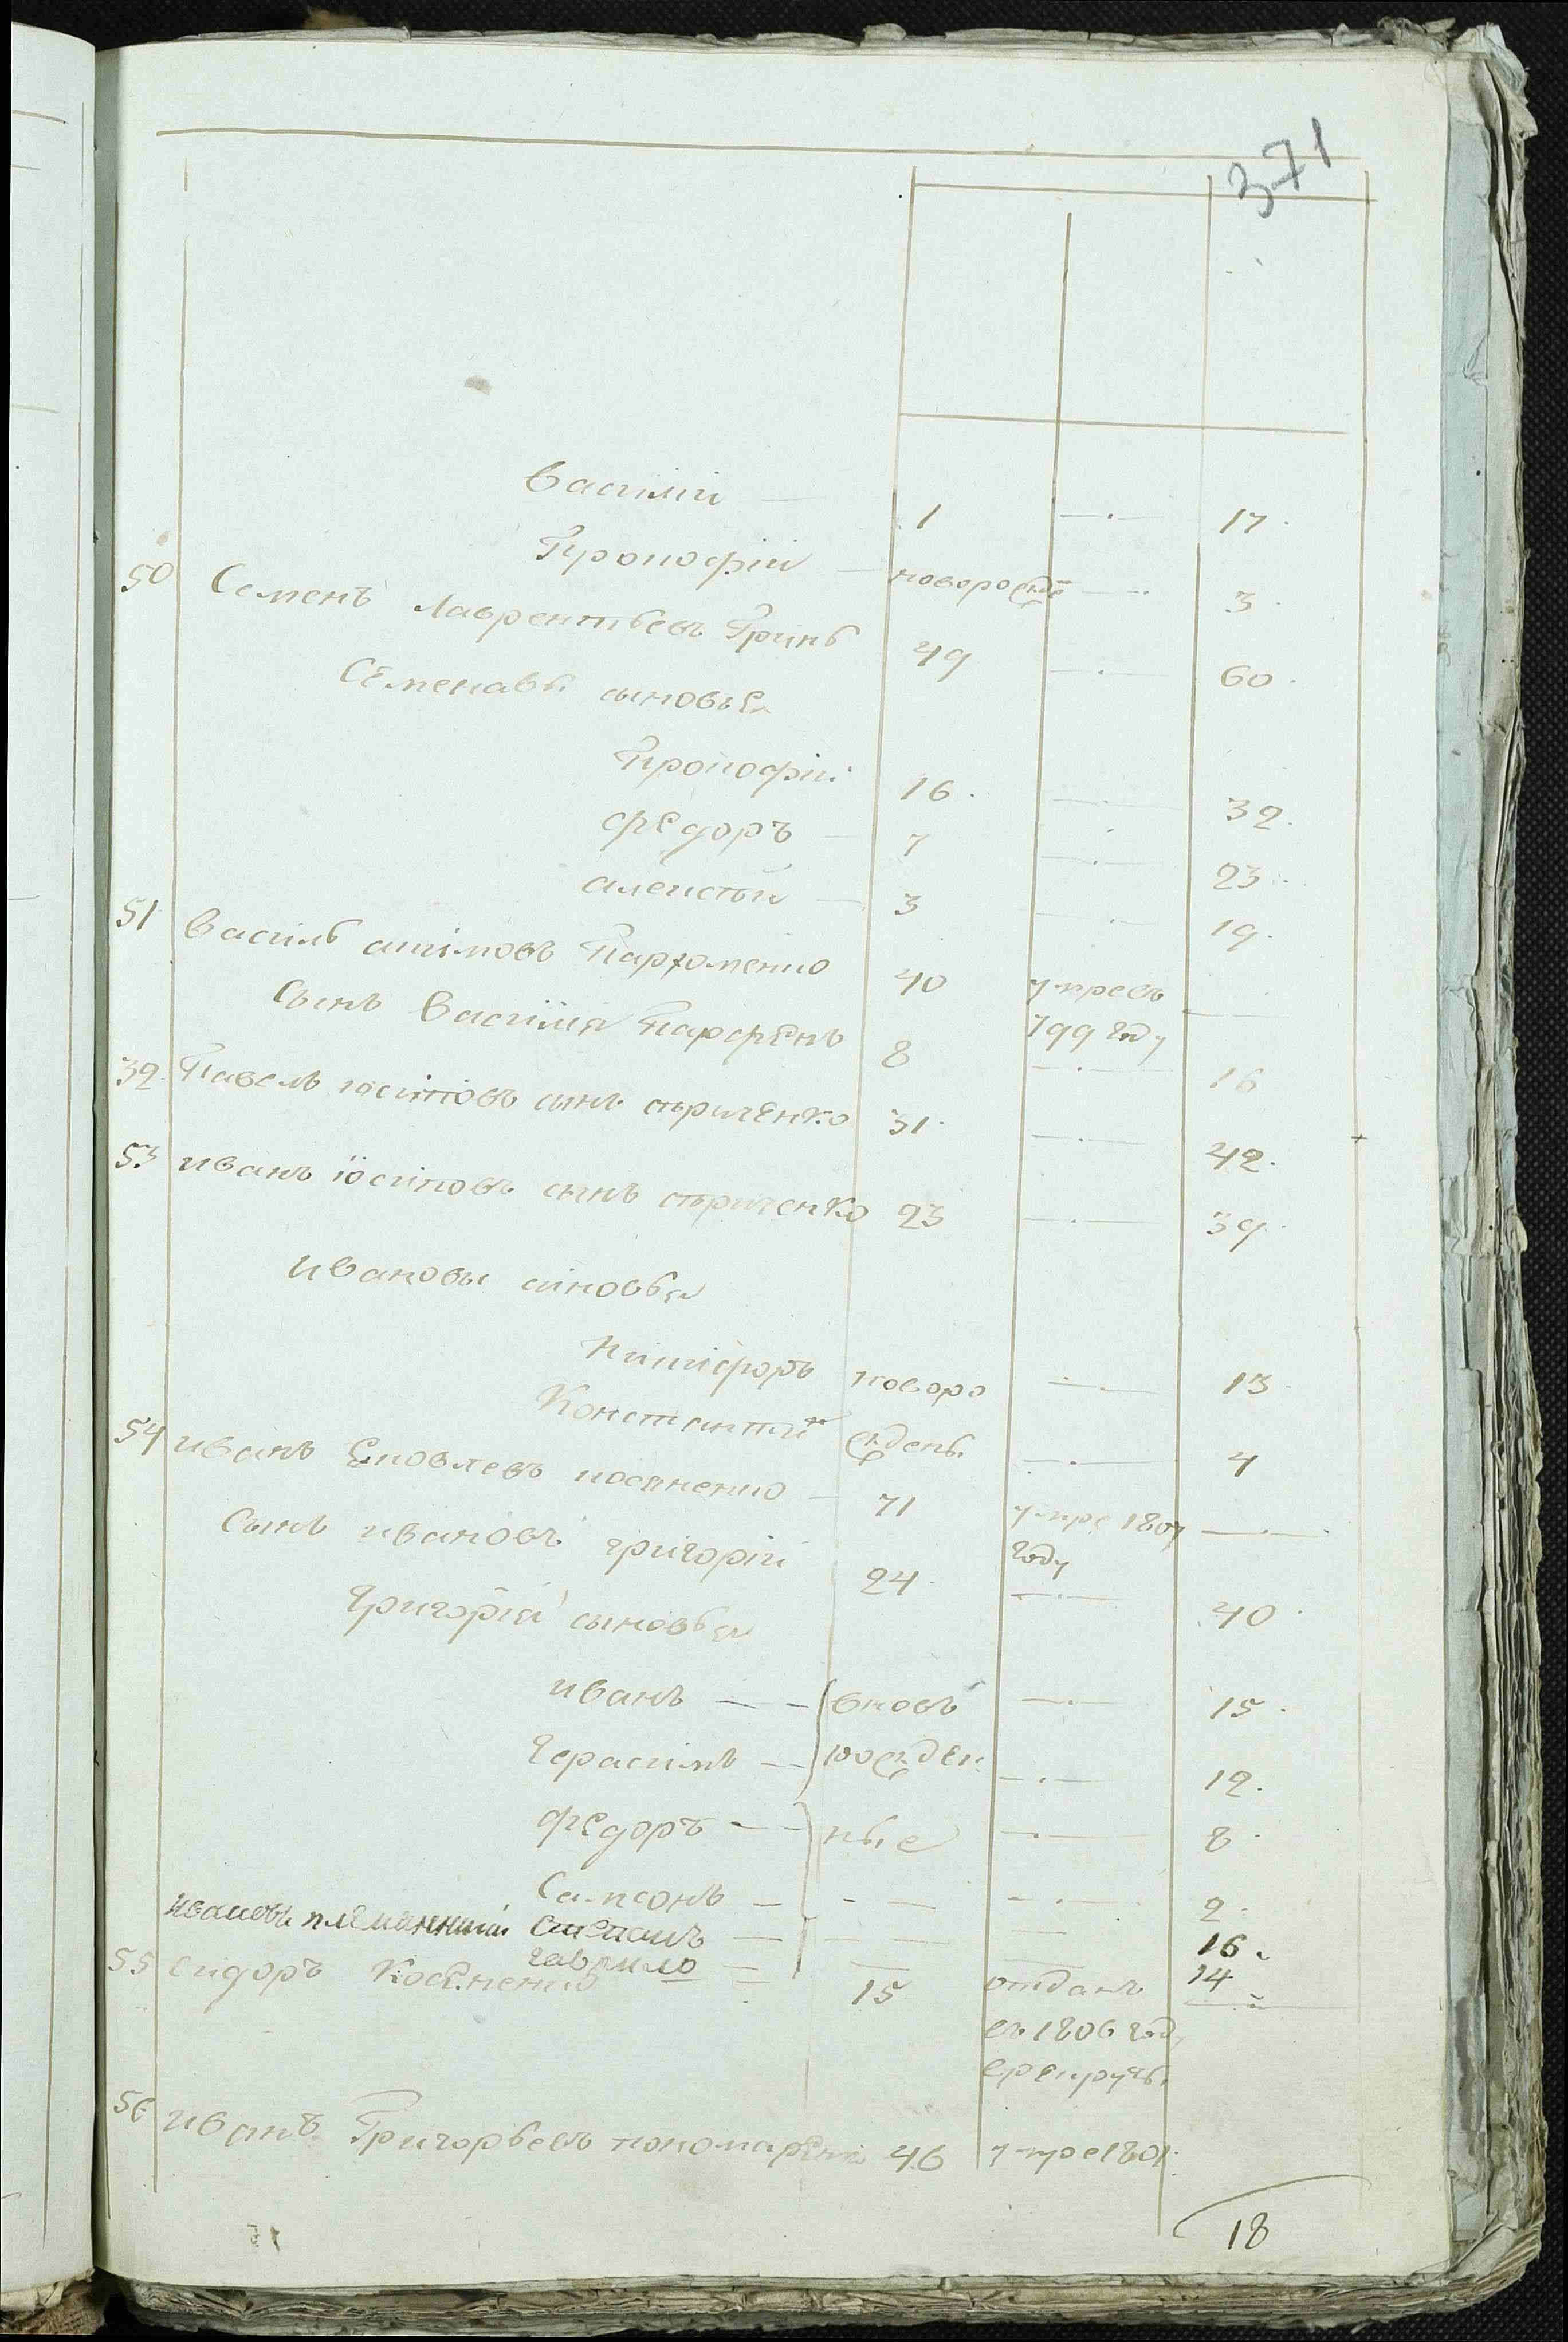 371
Василій — 1 —·— 17·
Прокофій — новорожде —·— 3·
50 Семенъ Лаврентьевъ Гринь 49 —·— 60·
Семенавы сыновья
Прокофій 16· —·— 32·
Федоръ — 7 —·— 23·
алексѣй — 3 —·— 19·
51 Василь акимовъ Пархоменко 40 умре въ 799 году —
Сынъ Василія Парфенъ 8 —·— 16
52· Павелъ іосіповъ сынъ стриченко 31· —·— 42·
53 иванъ іосіповъ сынъ стриченко 23 —·— 39·
Ивановы сіновья
Никифоръ новоро —·— 13·
Константи ждены —·— 4
54 иванъ Яковлевъ косяненко — 71 умре 1807 году —·—
Сынъ ивановъ григорій 24· —·— 40·
Григорія сыновья
иванъ — вновь —·— 15·
Герасимъ — рожден —·— 12·
Федоръ — ные —·— 8·
Сампсонъ — - — —·— 2·
Ивановы племянники Степанъ — — — 16·
гаврило — — 14
55 Сидоръ Косяненко = 15 отданъ —
въ 1806 году
в рекруты
56 иванъ Григорьевъ пономаренко 46 умре 1801·
18